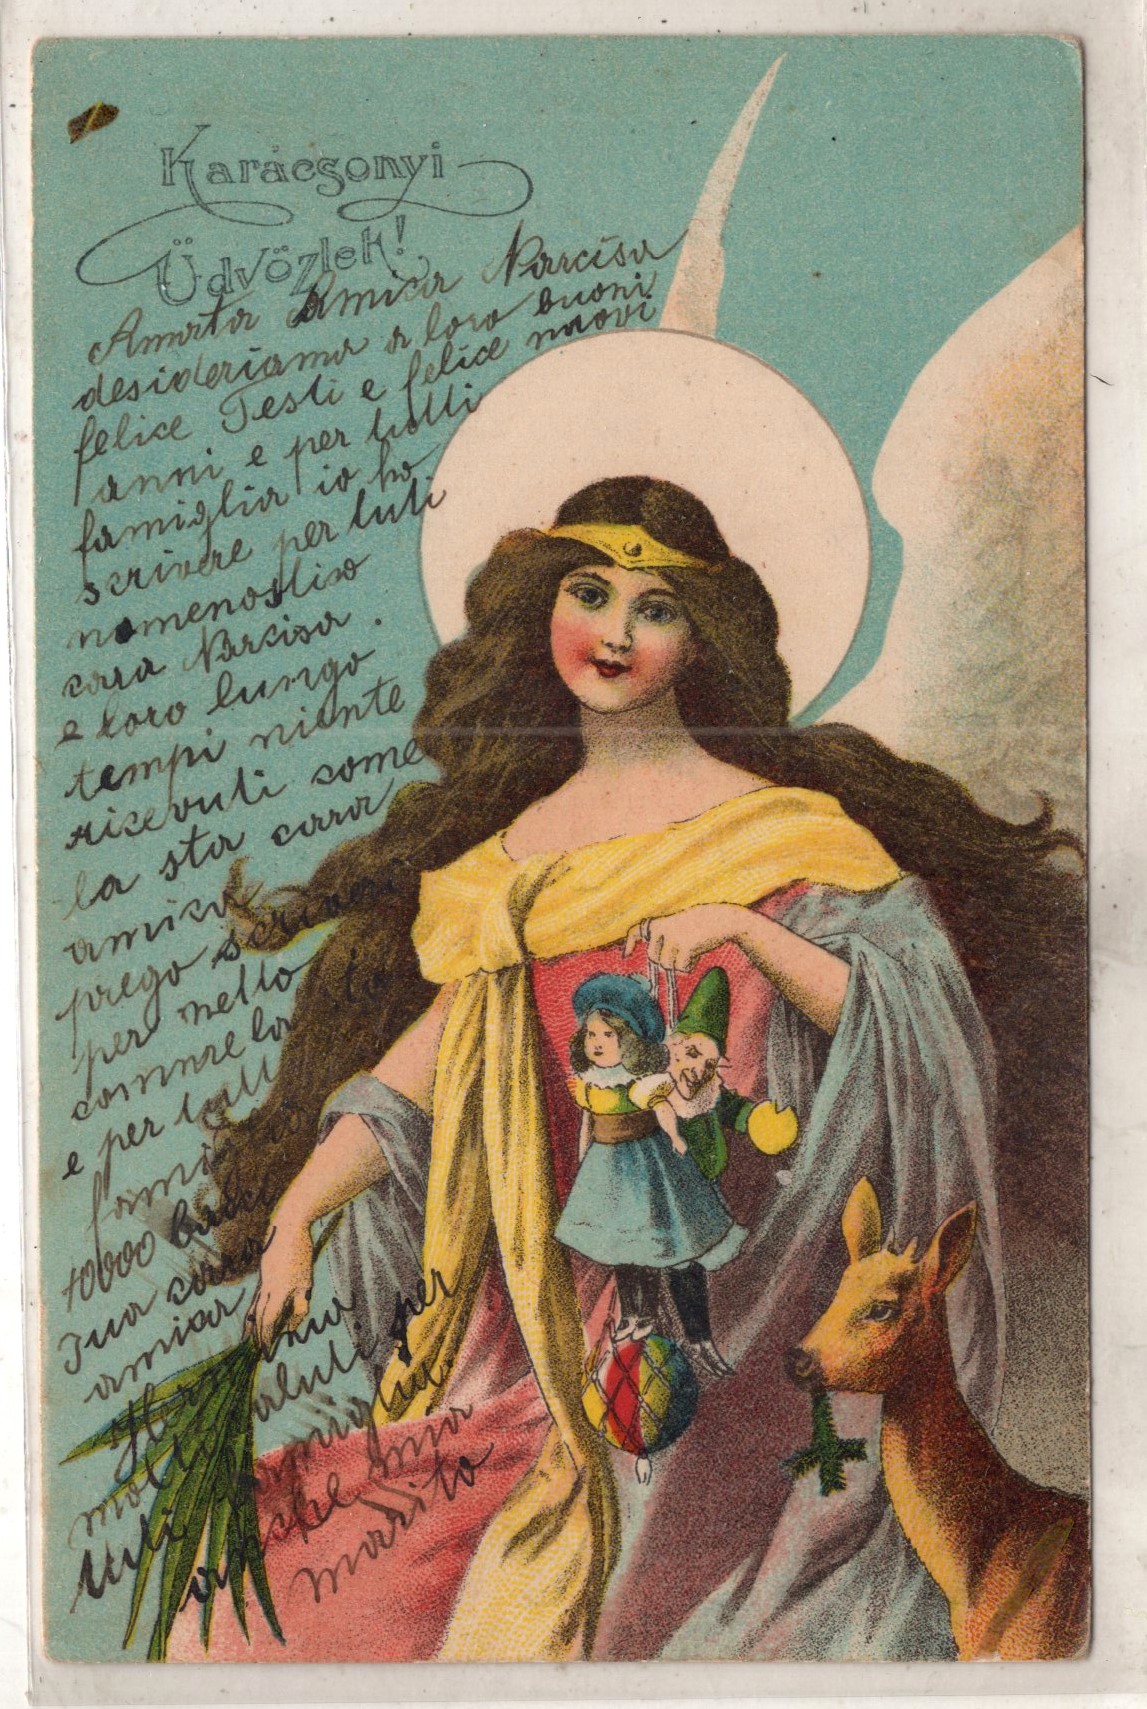 Karácsonyi
Üdvözlet!
Amata Amica Narcisa
desideriamo a loro buoni
felice Festi e felice nuovi
anni e per tutti
famiglia io ho
scrivere per tuti
nomenostico
cara Narcisa.
e loro lungo
tempi niente
ricevuti come
la sta cara
amica
prego scriveri
per nello
comare la
e per tutti
famiglia
10000 baci
Tua cara
amica mia.
saluti per
molti famiglia
tuti anche mio
marito